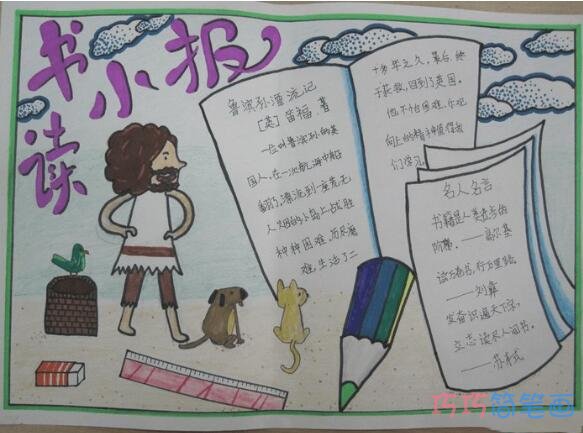 读书小报
鲁滨孙漂流记
[英] 笛福 著
一位叫鲁滨孙的英
国人,在一次航海中船
翻了,漂流到一座荒无
人烟的小岛上,战胜
种种困难,历尽艰
难,生活了二
十多年之久,最后,终
于获救,回到了英国。
他不怕困难,乐观
向上的精神值得我
们学习。
名人名言
书籍是人类进步的
阶梯。——高尔基
读万卷书,行万里路。
——刘彝
发奋识遍天下字,
立志读尽人间书。
——苏轼
巧巧简笔画